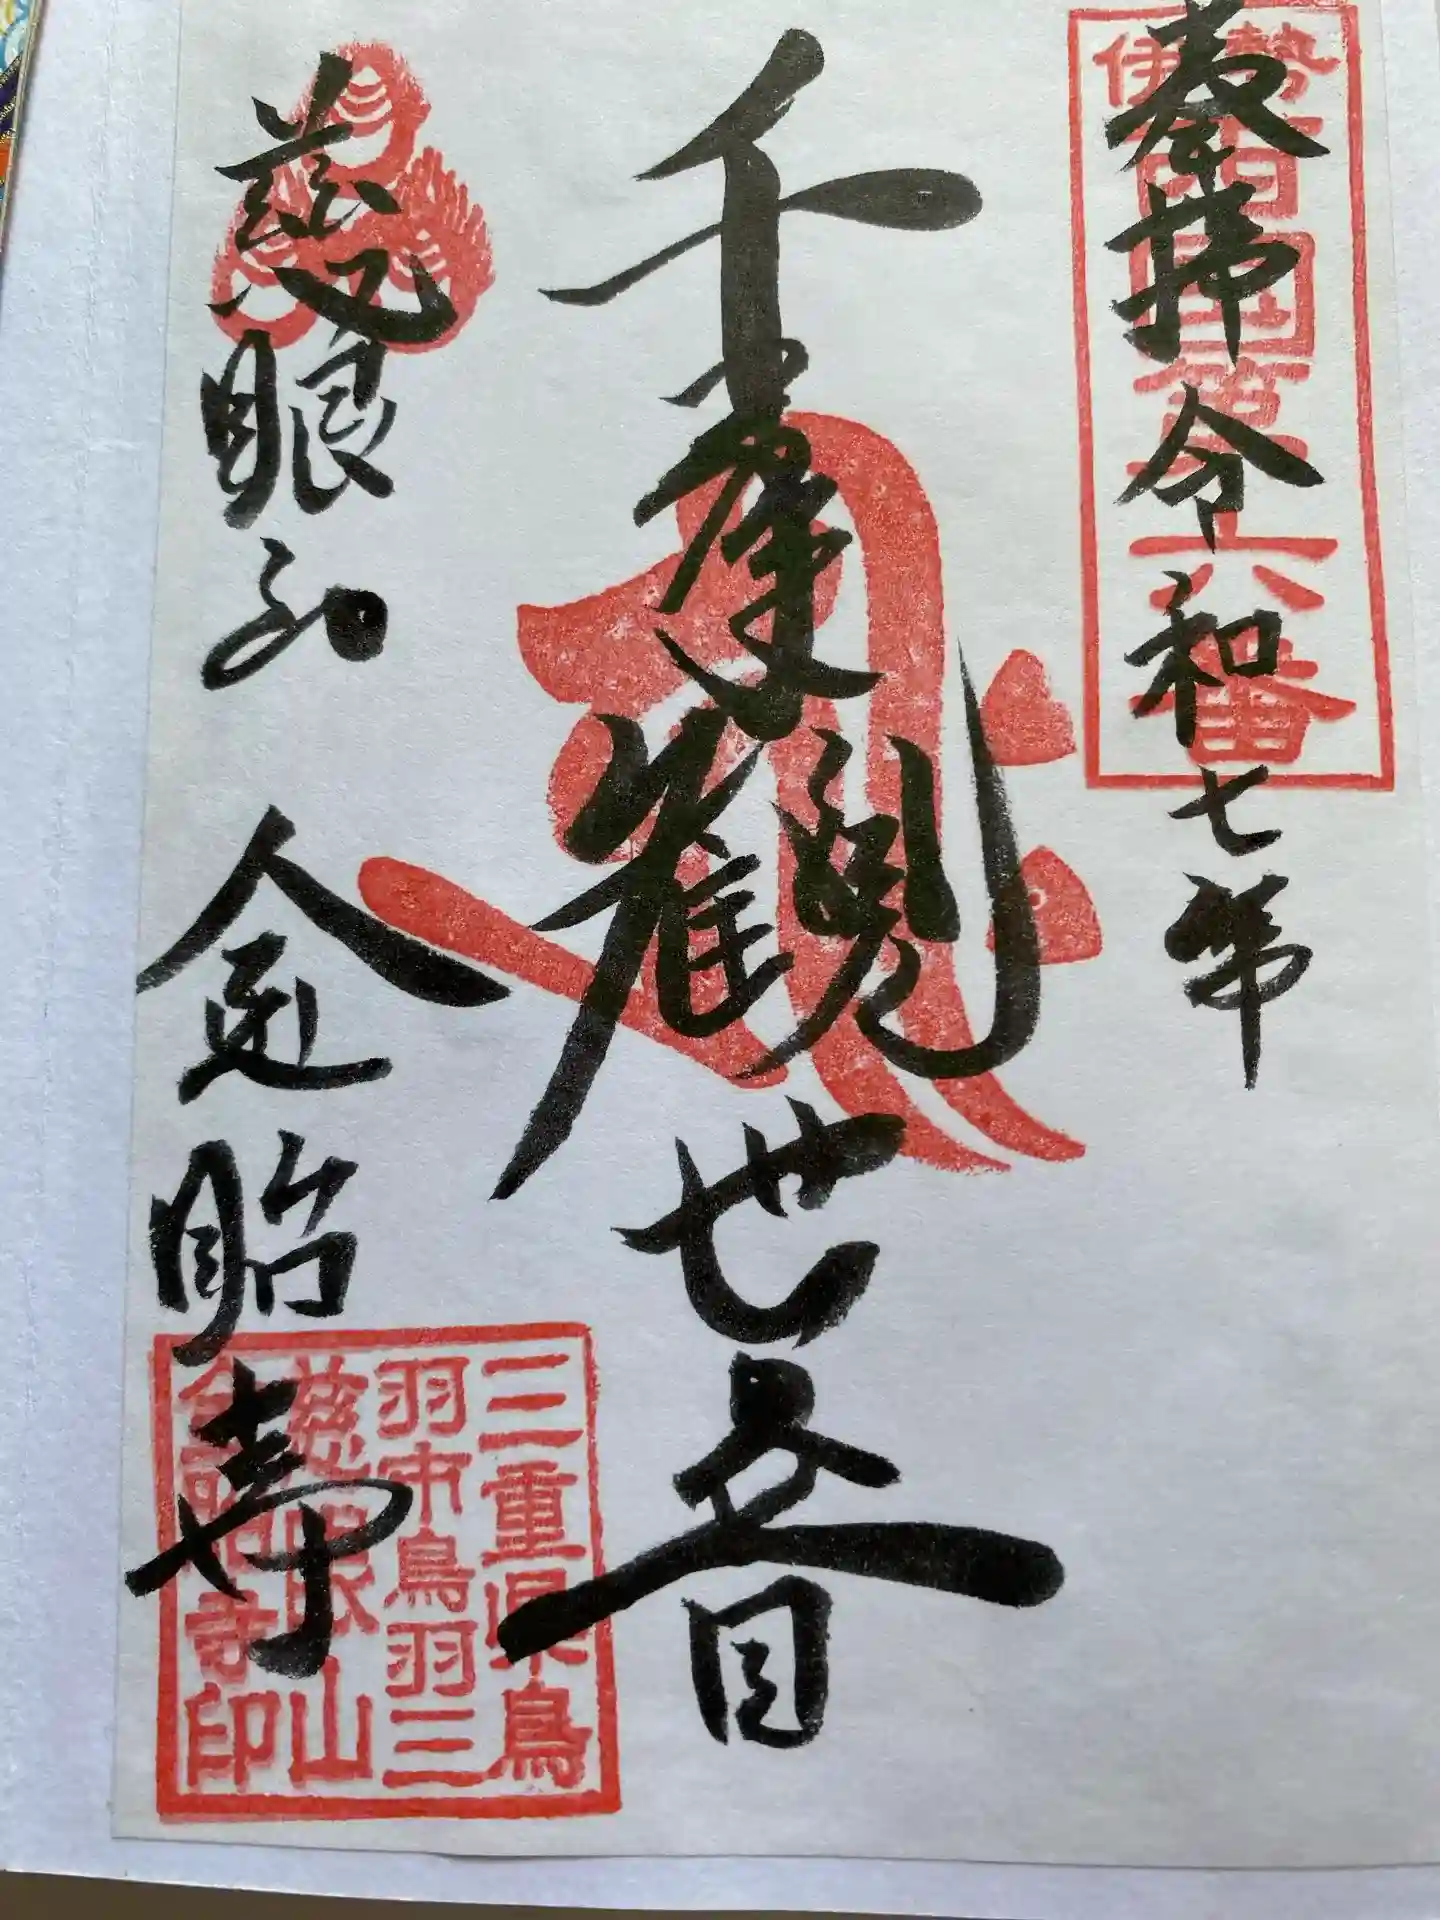 伊勢西国第六番
奉拝 令和七年
千手観世音
慈眼山 金胎寺
三重県鳥
羽市鳥羽三
慈眼山
金胎寺印